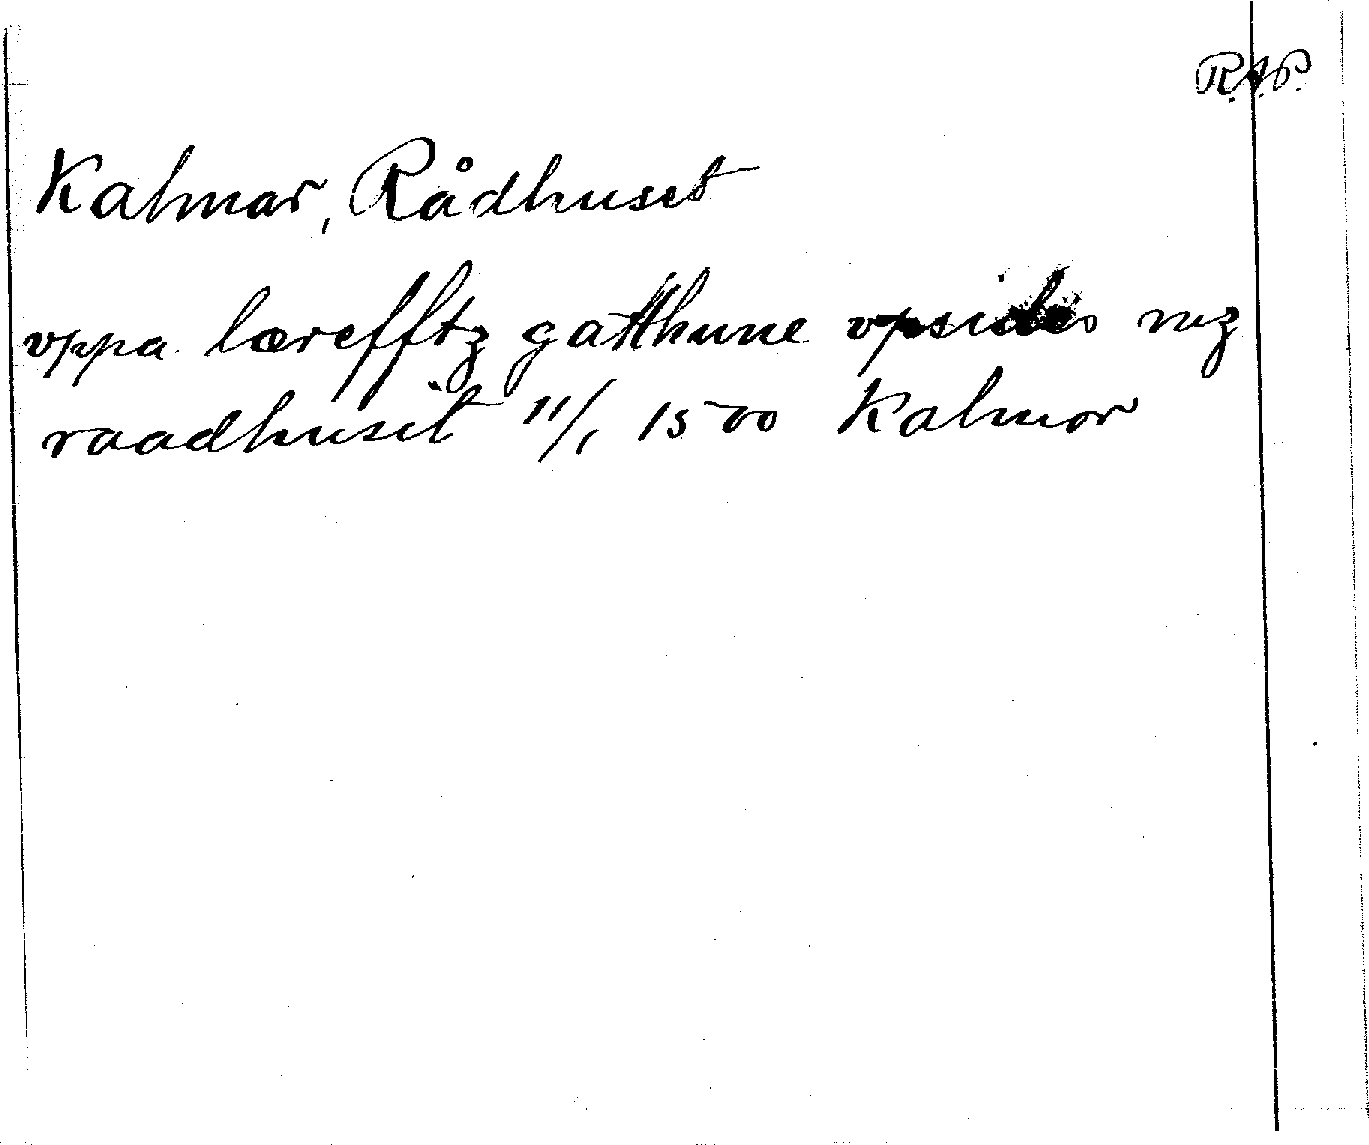 R.A.P.
Kalmar, Rådhuset
vppa lærefftz gatthune vpsides mz
raadhusit 11/1 1500 Kalmar